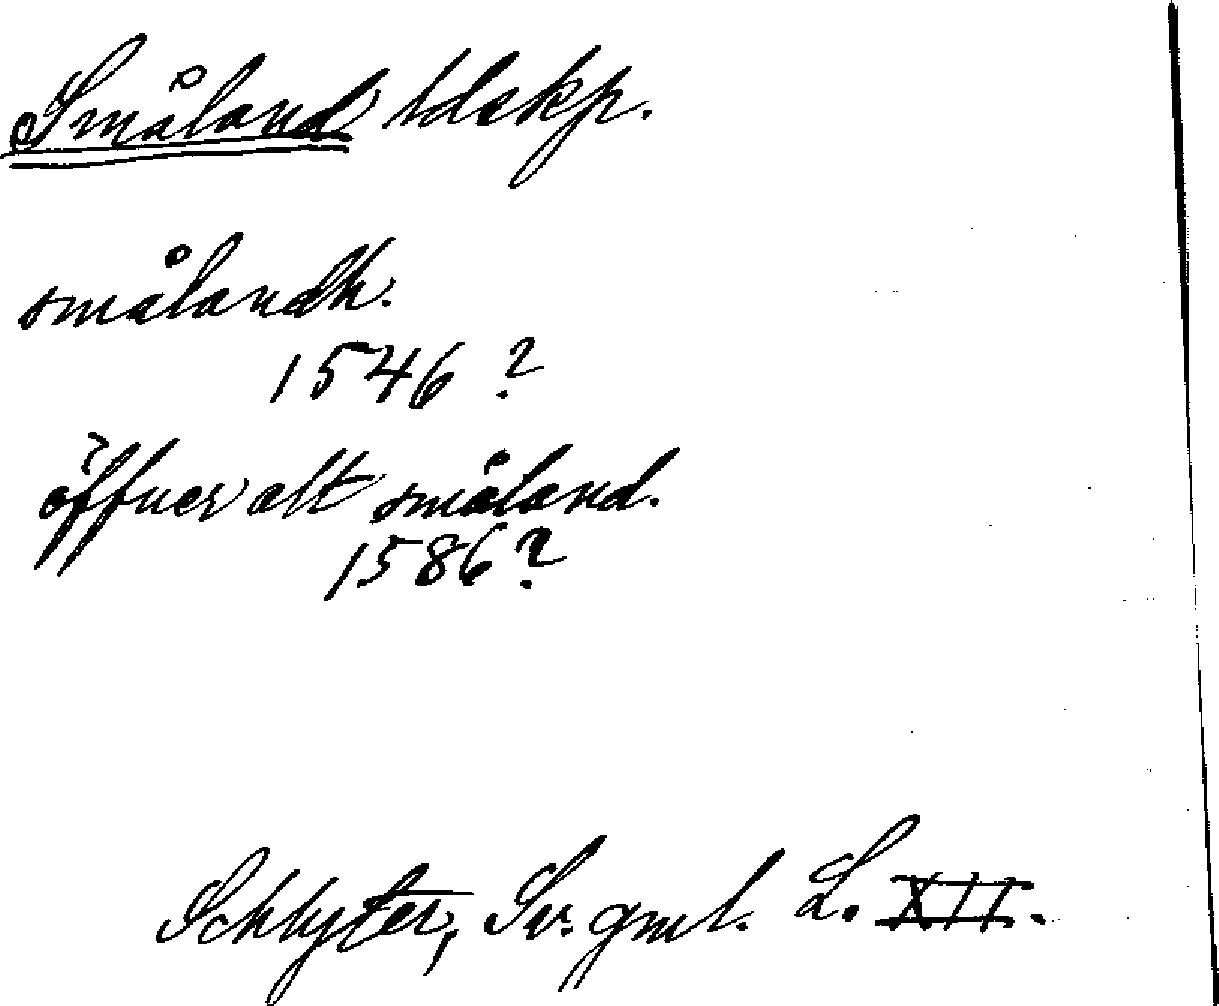 Småland ldskp.
smålandh.
1546?
öffuer alt småland.
1586?
Schlyter, Sv. gml. L. XII.